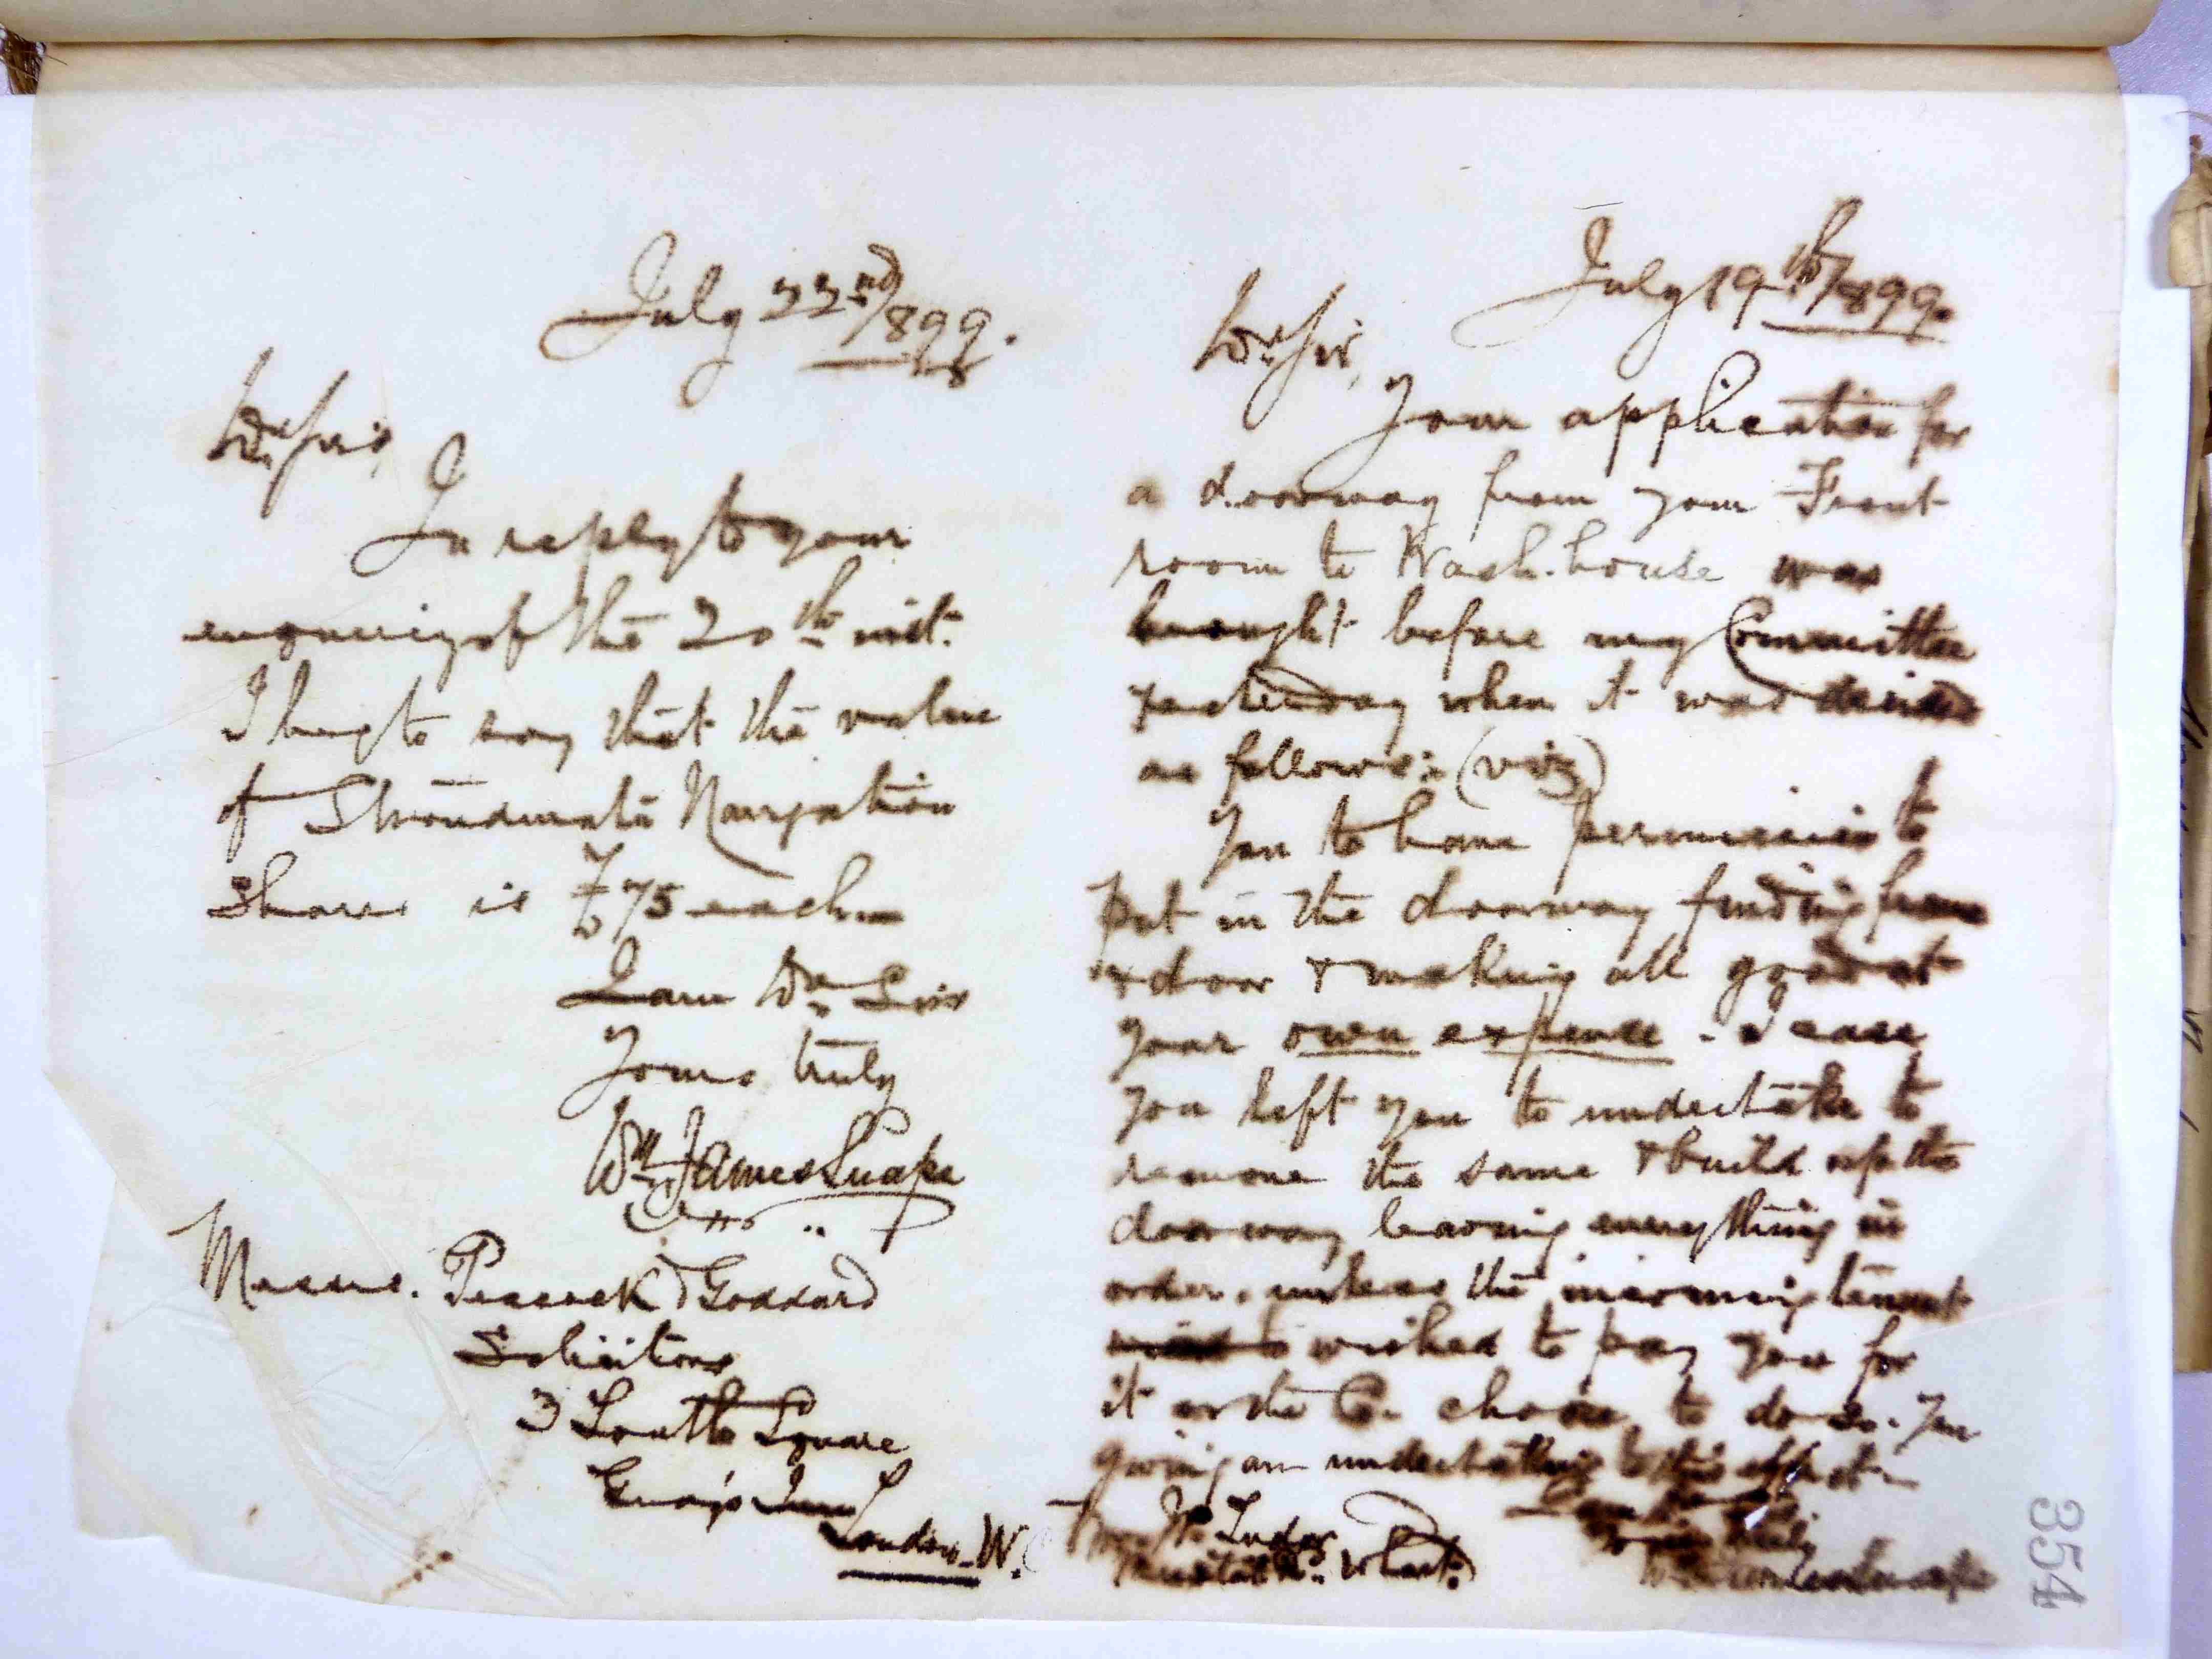 July 22nd/899.
Dr Sir,
In reply to your
enquiry of the 20th inst.
I beg to say that the value
of Stroudwater Navigation
Shares is £75 each
I am Dr Sir
Yours truly
Wm James Snape
Messrs. Peacock & Goddard
Solicitors
3 South Square
Gray's Inn
London. W.
July 19th/899.
Dr Sir,
Your application for
a doorway from your Front
room to Wash.house was
brought before my Committee
yesterday when it was decided
as follows: (viz)
You to have permission to
put in the doorway finding frame
& door & making all good at
your own expense. I case
you left you to undertake to
remove the same & build up the
doorway leaving everything in
order, unless the incoming tenant
wished to pay you for
it or the Co. choose to do so. You
giving an undertaking to this effect
Tudor
Wharf.
354